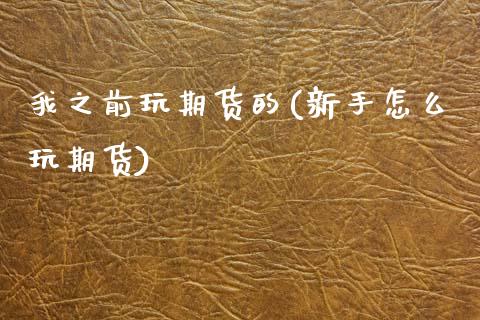 我之前玩期货的(新手怎么
玩期货)